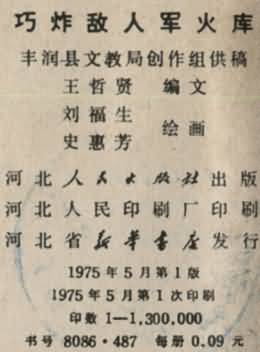 巧炸敌人军火库
丰润县文教局创作组供稿
王哲贤 编文
刘福生
史惠芳
绘画
河北人民出版社出版
河北人民印刷厂印刷
河北省新华书店发行
1975年5月第1版
1975年5月第1次印刷
印数 1—1,300,000
书号 8086·487 每册 0.09 元